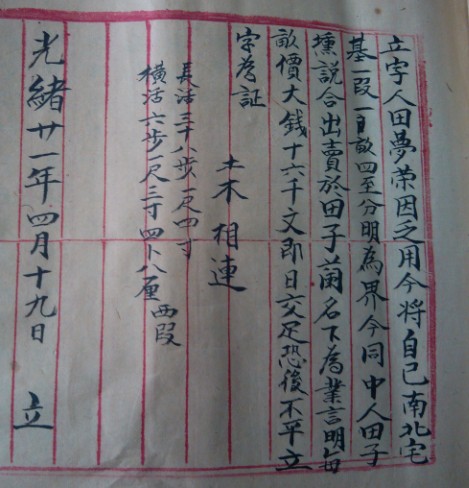 立字人田夢荣因乏用今将自己南北宅
基一段一畝四至分明為界今同中人田子
壎説合出賣於田子蘭名下為業言明每
畝價大錢十六千文即日交足恐後不平立
字為証
土木相連
長活三十八步一尺四寸
横活六步一尺二寸 四卜八厘 西段
光緒廿一年四月十九日 立